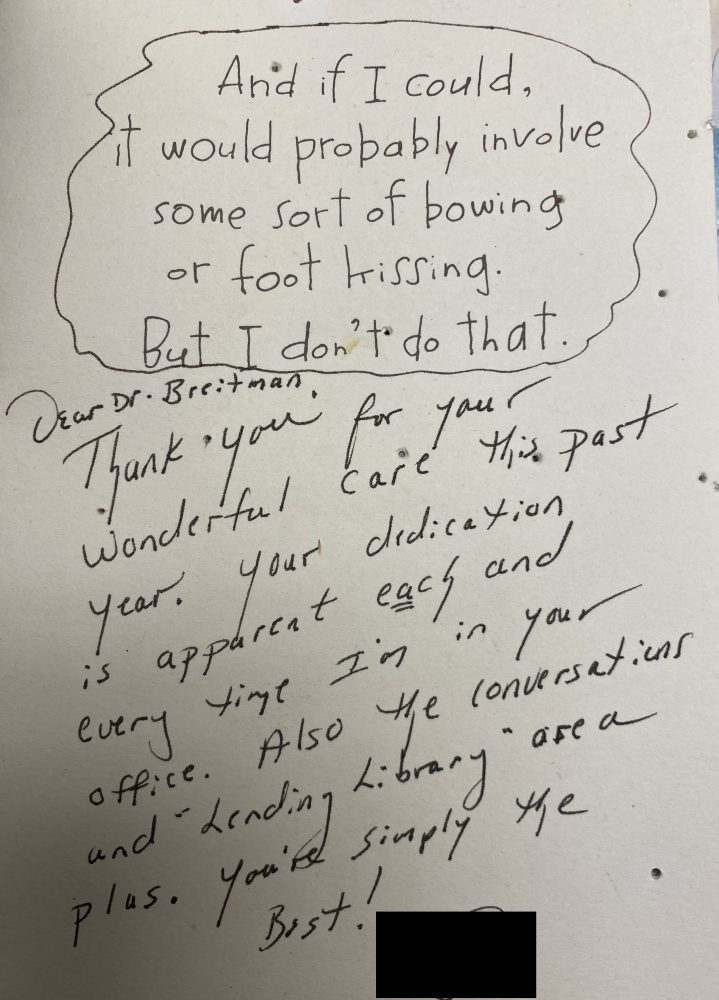 And if I could,
it would probably involve
some sort of bowing
or foot kissing.
But I don't do that.
Dear Dr. Breitman,
Thank you for your
wonderful care this past
year. Your dedication
is apparent each and
every time I'm in your
office. Also the conversations
and "Lending Library" are a
plus. You're simply the
Best!